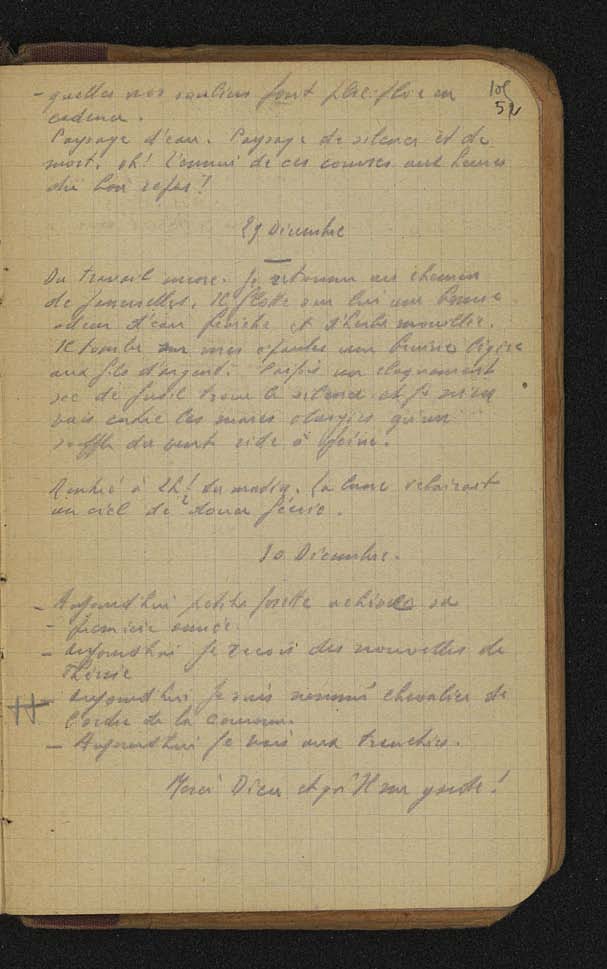 - quelles nos souliers font floc-floc en
cadence.
Paysage d'eau. Paysage de silence et de
mort. Oh! L'ennui de ces courses aux heures
du bon repos!
101
52
29 Décembre
Du travail encore. Je retourne au chemin
de fascines. Il flotte sur lui une bonne
odeur d'eau fraîche et d'herbe mouillée.
Il tombe sur mes épaules une bruine légère
aux fils d'argent. Parfois un claquement
sec de fusil troue le silence et je m'en
vais entre les mares élargies qu'un
souffle du vent ride à peine.
Rentré à 2h ½ du matin. La lune éclairait
un ciel de douce féerie.
30 Décembre.
- Aujourd'hui petite Josette achève sa
- première année.
- Aujourd'hui je reçois des nouvelles de
- Aujourd'hui je suis nommé chevalier de
l'ordre de la couronne.
- Aujourd'hui je vais aux tranchées.
Merci Dieu et qu'Il me garde!